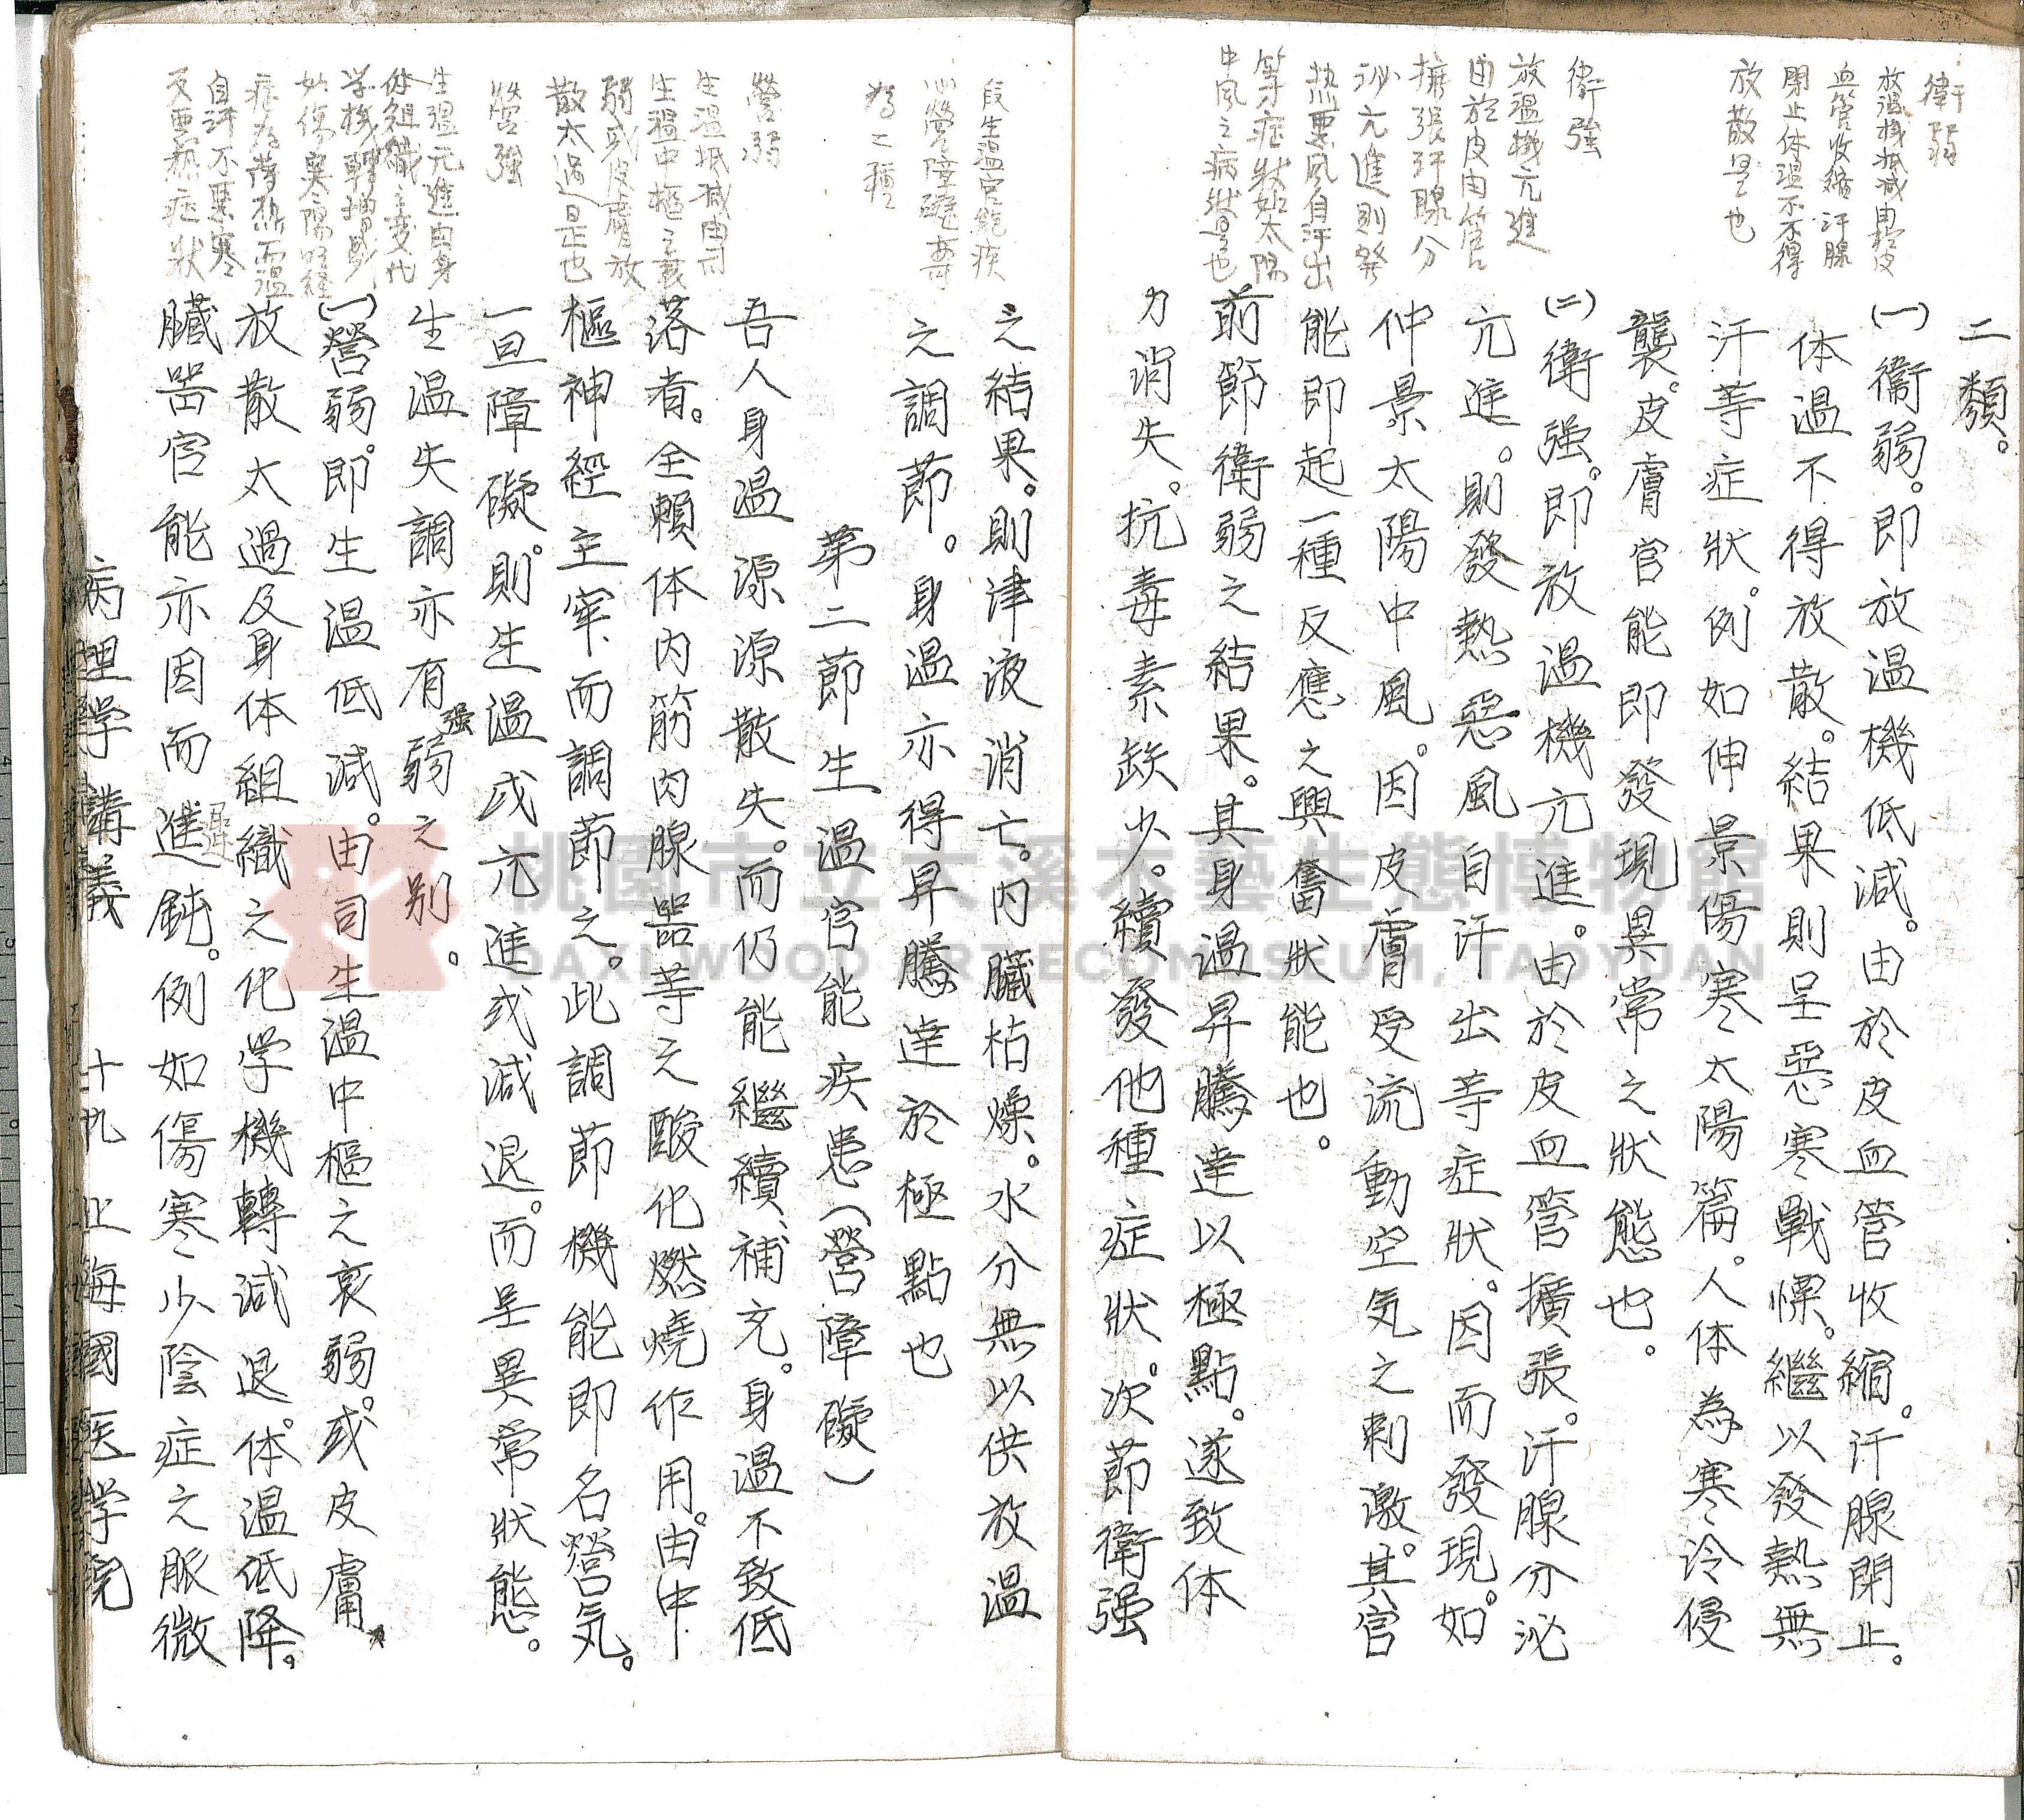 衛弱
放溫機低減由於皮
血管收縮汗腺
閉止体溫不得
放散是也
衛強
放溫機亢進
由於皮肉管
擴張汗腺分
泌亢進則發
热悪風自汗出
等症狀如太陽
中風之病狀是也
二類。
(一)衞弱。即放溫機低減。由於皮血管收縮。汗腺閉止。
体溫不得放散。結果則呈惡寒戰慄。繼以發熱無
汗等症狀。例如仲景傷寒太陽篇。人体為寒冷侵
襲。皮膚官能即發現異常之狀態也。
(二)衛强。即放溫機亢進。由於皮血管擴張。汗腺分泌
亢進。則發熱惡風自汗出等症狀。因而發現。如
仲景太陽中風。因皮膚受流動空気之刺激。其官
能即起一種反應之興奮狀能也。
前節衛弱之結果。其身溫昇騰達以極點。遂致体
力消失。抗毒素缺少。續發他種症狀。次節衛强
段生溫官能疾
心營障礙專
為二種
營弱
生溫低減由司
生溫中樞之衰
弱或皮膚放
散太過是也
營強
生溫亢進由身
体組織之変化
学機轉增進
如傷寒陽明経
症為蒸热而溫
自汗不悪寒
反悪热症狀
之結果。則津液消亡。内臟枯燥。水分無以供放溫
之調節。身溫亦得昇騰達於極點也
第二節生溫官能疾患(營障礙)
吾人身溫源源散失。而仍能繼續補充。身溫不致低
落者。全賴体内筋肉腺器等之酸化燃燒作用。由中
樞神經主宰而調節之。此調節機能即名營気。
一旦障礙。則生溫或亢進或減退。而呈異常狀態。
生溫失調亦有强弱之别。
(一)營弱。即生溫低減。由司生溫中樞之衰弱。或皮膚
放散太過及身体組織之化学機轉減退。体溫低降。
臟器官能亦因而進鈍。例如傷寒少陰症之脈微
病理学講義 十九 上海國医学院
桃園市立大溪木藝生態博物館
DAXI WOOD ART ECOMUSEUM, TAOYUAN